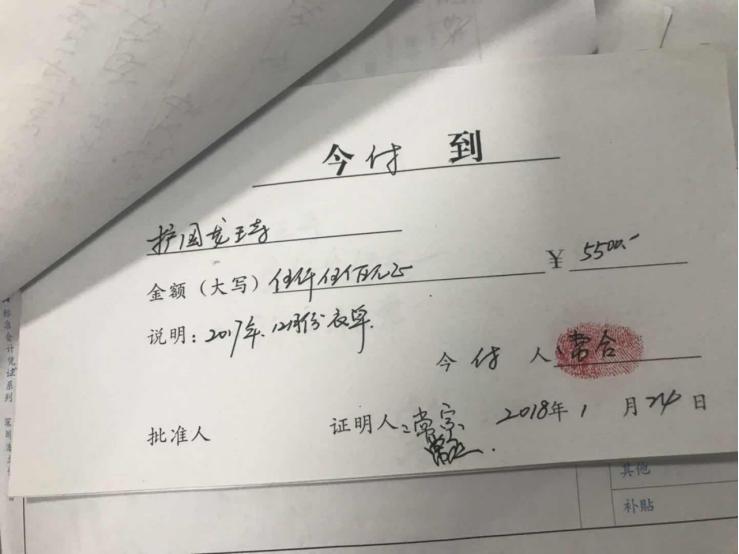 今付到
护国龙王寺
金额（大写）伍仟伍佰元正 ￥5500.-
说明：2017年.12月份衣单.
今付人：常合
批准人 证明人：常宗 2018年1月24日
标准会计凭证系列
其他
补贴